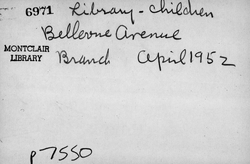 6971 Library - Children
Bellevue Avenue
MONTCLAIR
LIBRARY
Branch April 1952
p7550